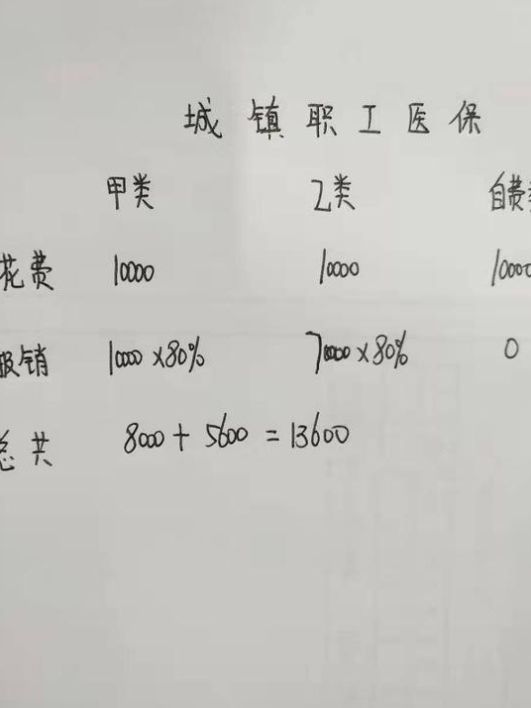 城镇职工医保
甲类 乙类 自费
花费 10000 10000 10000
报销 10000×80% 7000×80% 0
总共 8000+5600=13600